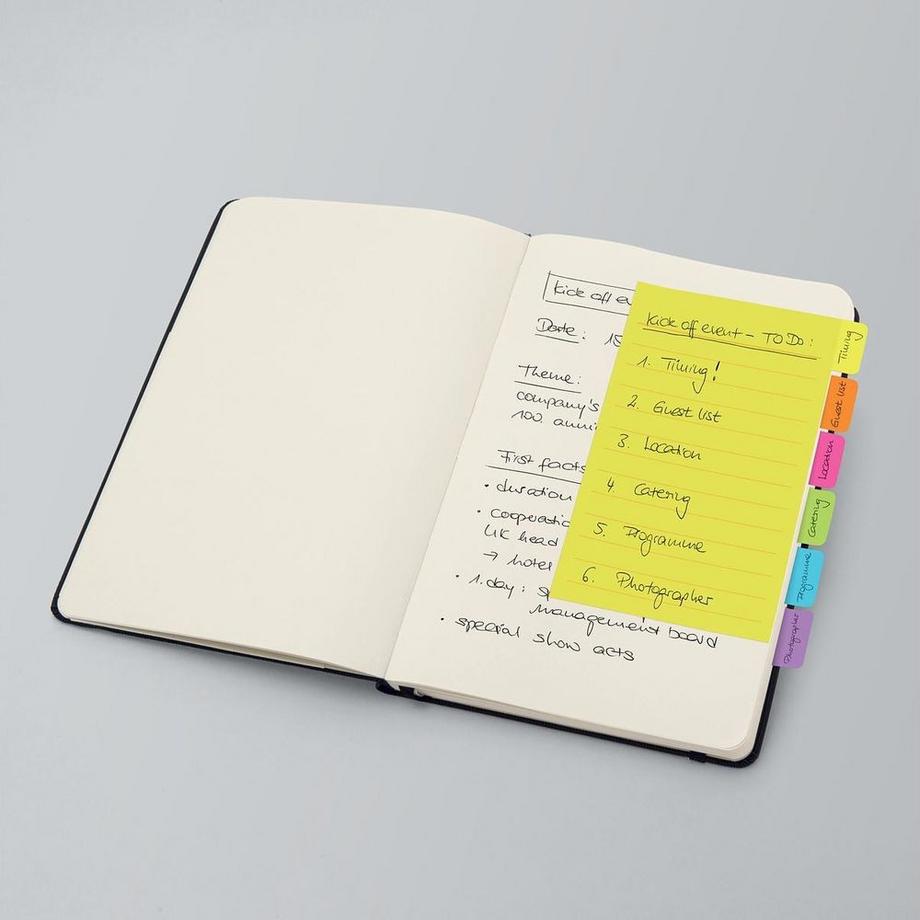 Kick off ev
Date: 15
Theme:
company's
100. anni
First facts
• duration
• cooperatio
UK head
→ hotel
• 1. day: sp
management board
• special show acts
Kick off event – TO DO:
1. Timing!
2. Guest list
3. Location
4. Catering
5. Programme
6. Photographer
Timing
Guest list
Location
Catering
Programme
Photographer